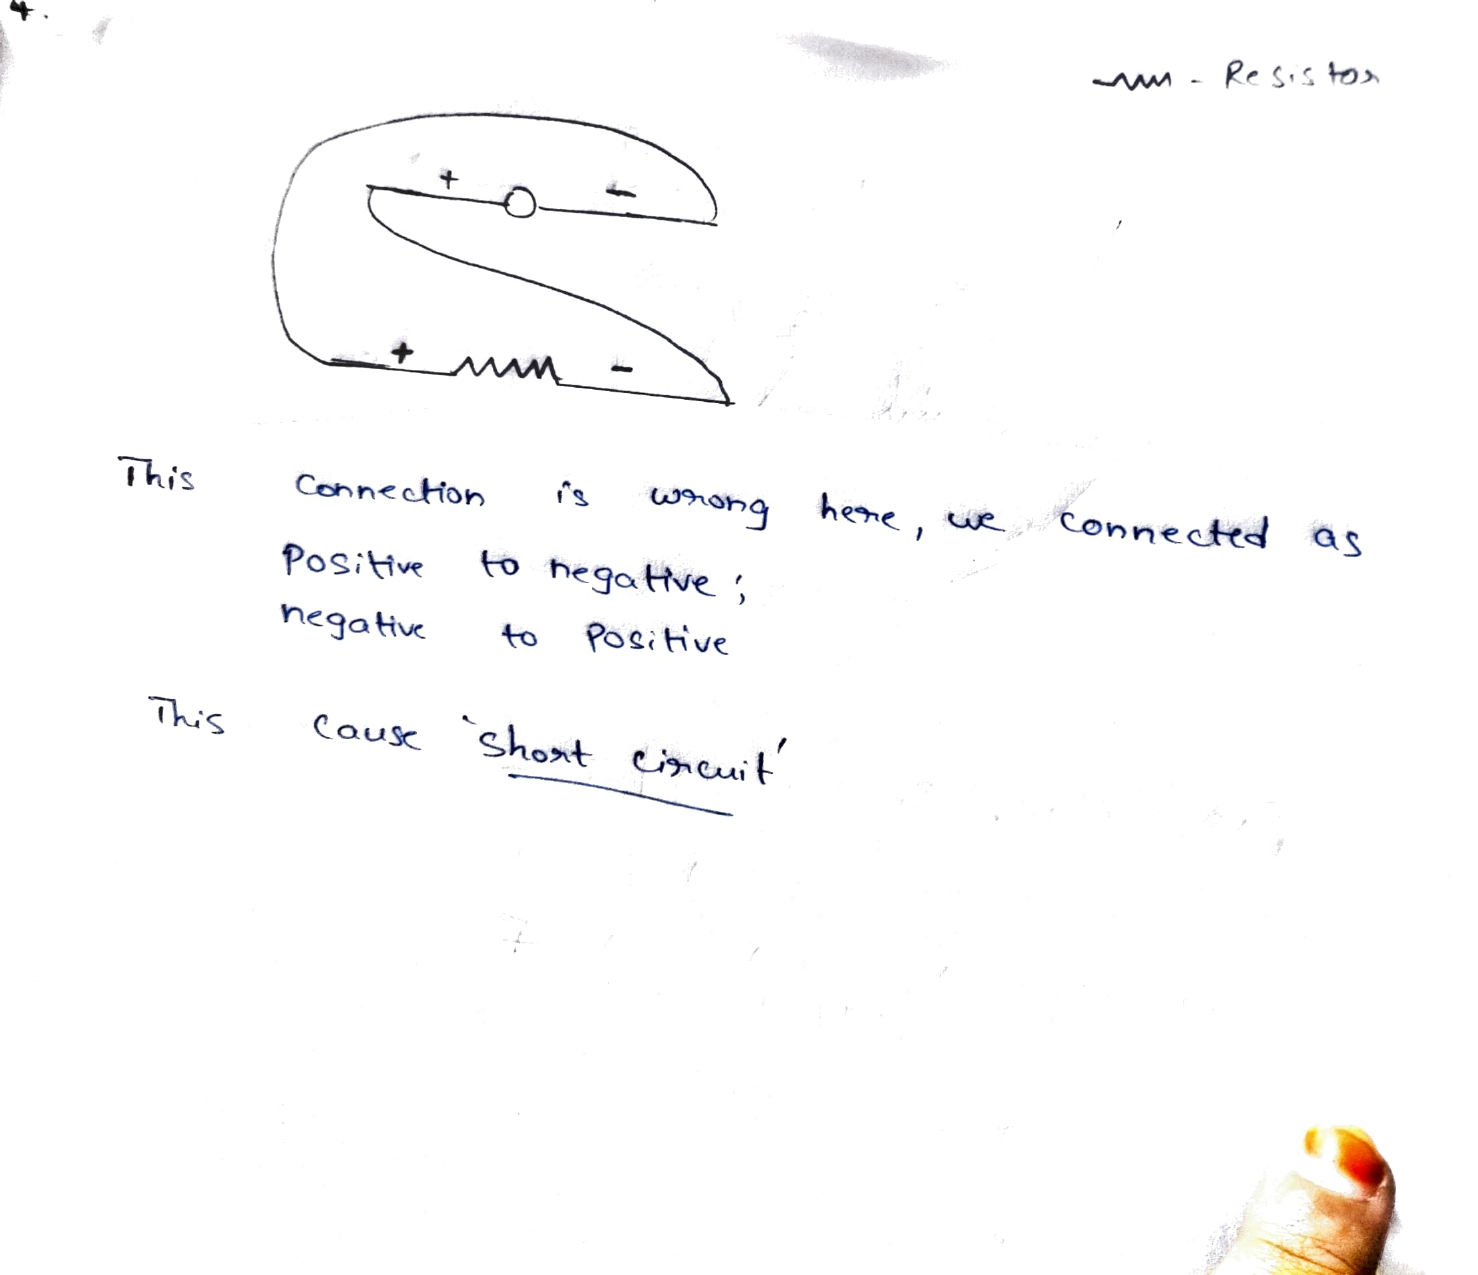 4.
- Resistor
+ -
+ -
This connection is wrong here, we connected as
Positive to negative ;
negative to Positive
This cause 'short circuit'